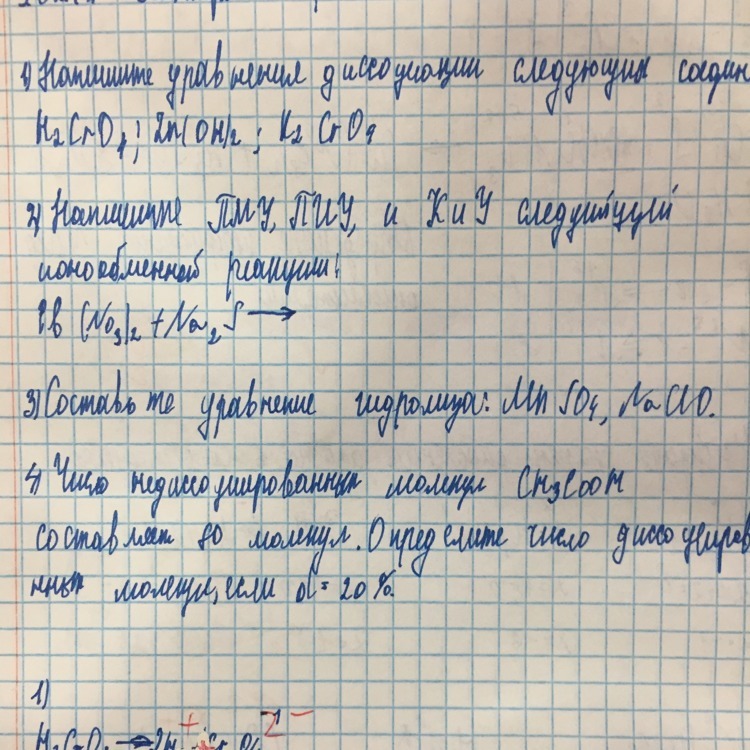 1) Напишите уравнения диссоциации следующих соедин
H₂CrO₄; Zn(OH)₂; K₂CrO₄
2) Напишите ПМУ, ПИУ, и КиУ следующей
ионообменной реакции:
(NO₃)₂ + Na₂S →
3) Составьте уравнение гидролиза: MnSO₄, NaClO.
4) Число недиссоциированных молекул CH₃COOH
составляет 80 молекул. Определите число диссоциирова
нных молекул, если α = 20%.
1)
H₂CrO₄ → 2H⁺ CrO₄²⁻